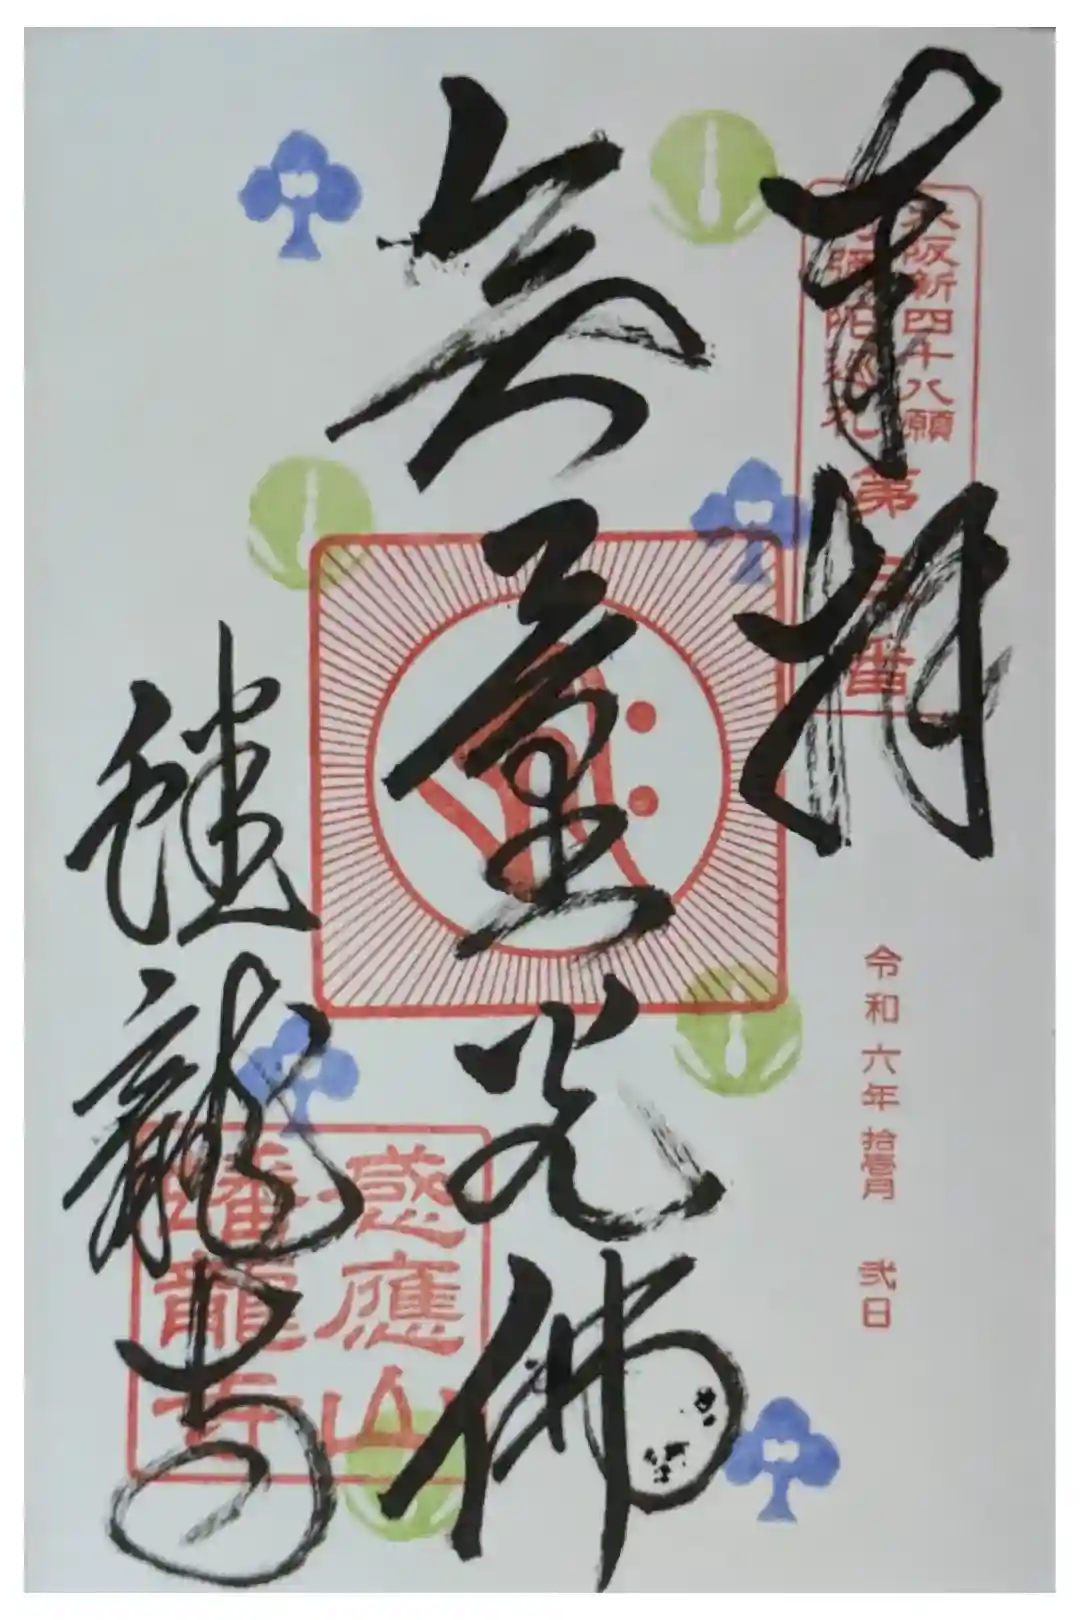 奉拝
大阪新四十八願
阿彌陀巡礼
第三番
令和六年拾壹月弐日
無量光佛
蟠龍寺
感應山
蟠龍寺